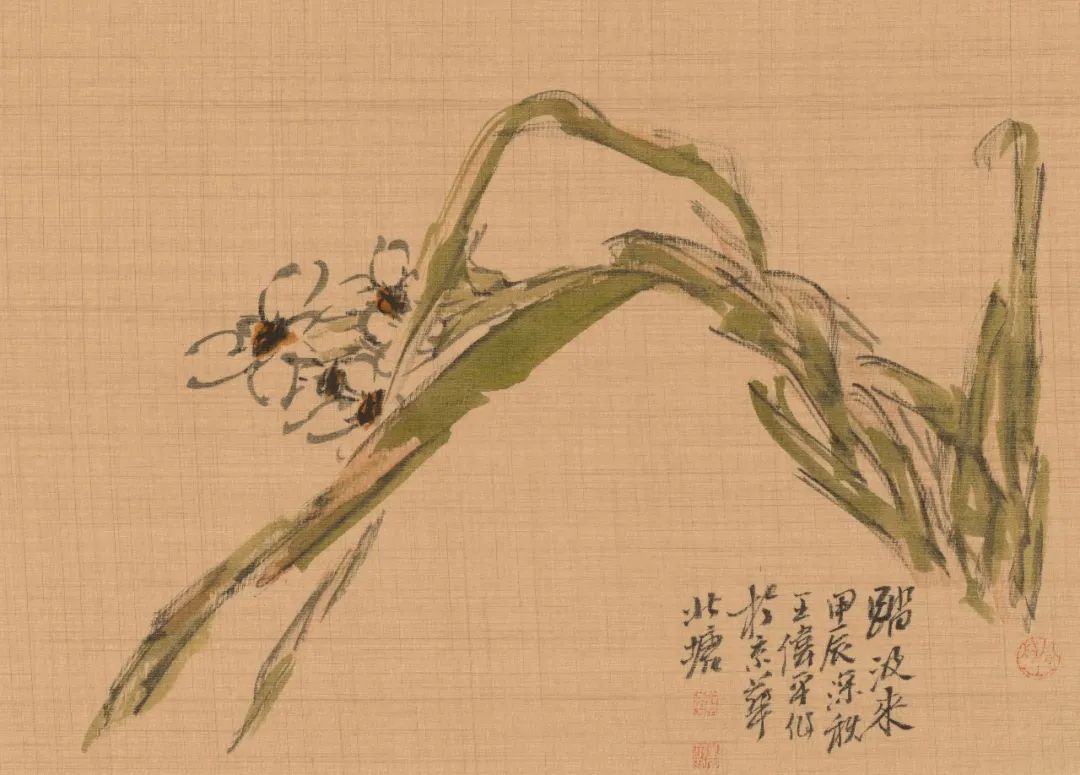 踏波來
甲辰深秋
王偉平作
於京華
北塘